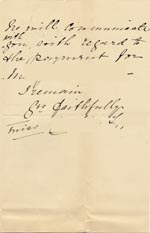 he will communicate
with
you, with regard to
the payment for
M
I remain
Yrs faithfully